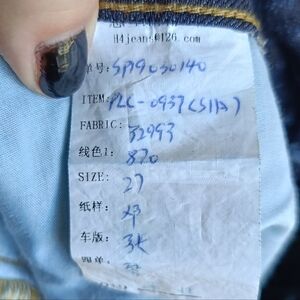 H4jeans@126.com
单号:SP19030140
ITEM:PLC-0937(S117)
FABRIC: 32993
线色1: 820
SIZE: 27
纸样: 邓
车版: 张
跟单: